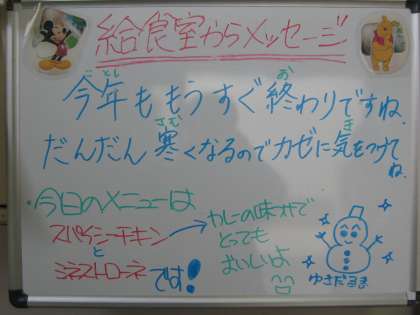 給食室からメッセージ
今年ももうすぐ終わりですね。
ことし
お
だんだん寒くなるのでカゼに気をつけてね。
さむ
き
今日のメニューは
スパイシーチキン
と
ミネストローネです!
カレーの味付で
とっても
おいしいよ
ゆきだるま